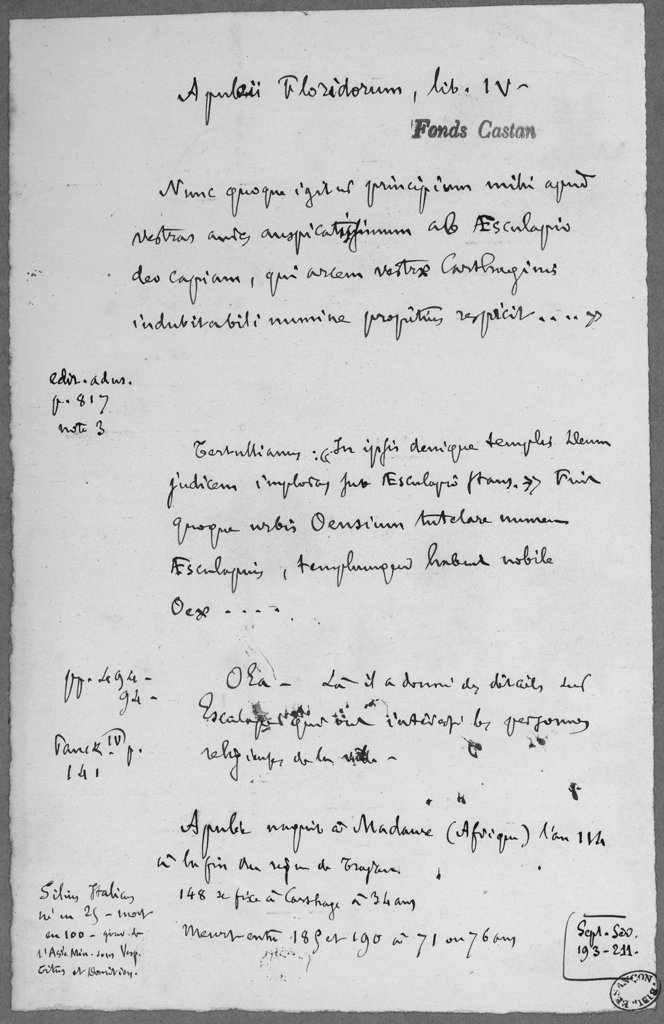 Apuleii Floridorum, lib. IV -
Fonds Castan
Nunc quoque igitur principium mihi apud
vestras aures auspicatissimum ab Æsculapio
deo capiam, qui arcem vestræ Carthaginis
indubitabili numine propitius respicit . . . . »
edit. ad us.
p. 817
note 3
Tertullianus : « In ipsis denique templis Deum
judicem imploras sub Æsculapio stans. » Fuit
quoque urbis Oensium tutelare numen
Æsculapius, templumque habuit nobile
Oeæ . . . .
pp. 494 -
94 -
OEa - Là il a donné des détails sur
Esculape qui ont intéressé les personnes
religieuses de la ville -
Panck. IV p.
141
Apulée naquit à Madaure (Afrique) l'an 114
à la fin du règne de Trajan.
148 se fixe à Carthage à 34 ans
Meurt entre 185 et 190 à 71 ou 76 ans
Silius Italicus
né en 25 - mort
en 100 - gouv. de
l'Asie Min. sous Vesp.
Titus et Domitien.
Sept. Sev.
193-211.
BESANÇON BIBL.